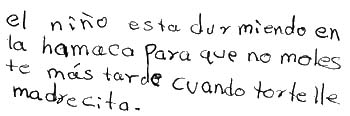 el niño esta durmiendo en
la hamaca para que no moles
te más tarde cuando tortelle
madrecita.